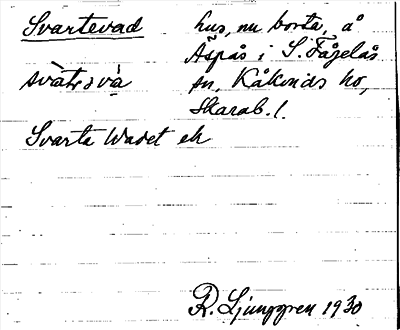 Svartevad hus, nu borta, å
Aspås i S. Fågelås
svàtəvà sn, Kåkinds hd,
Skarab. l.
Svarta Wadet ek
R. Ljunggren 1930